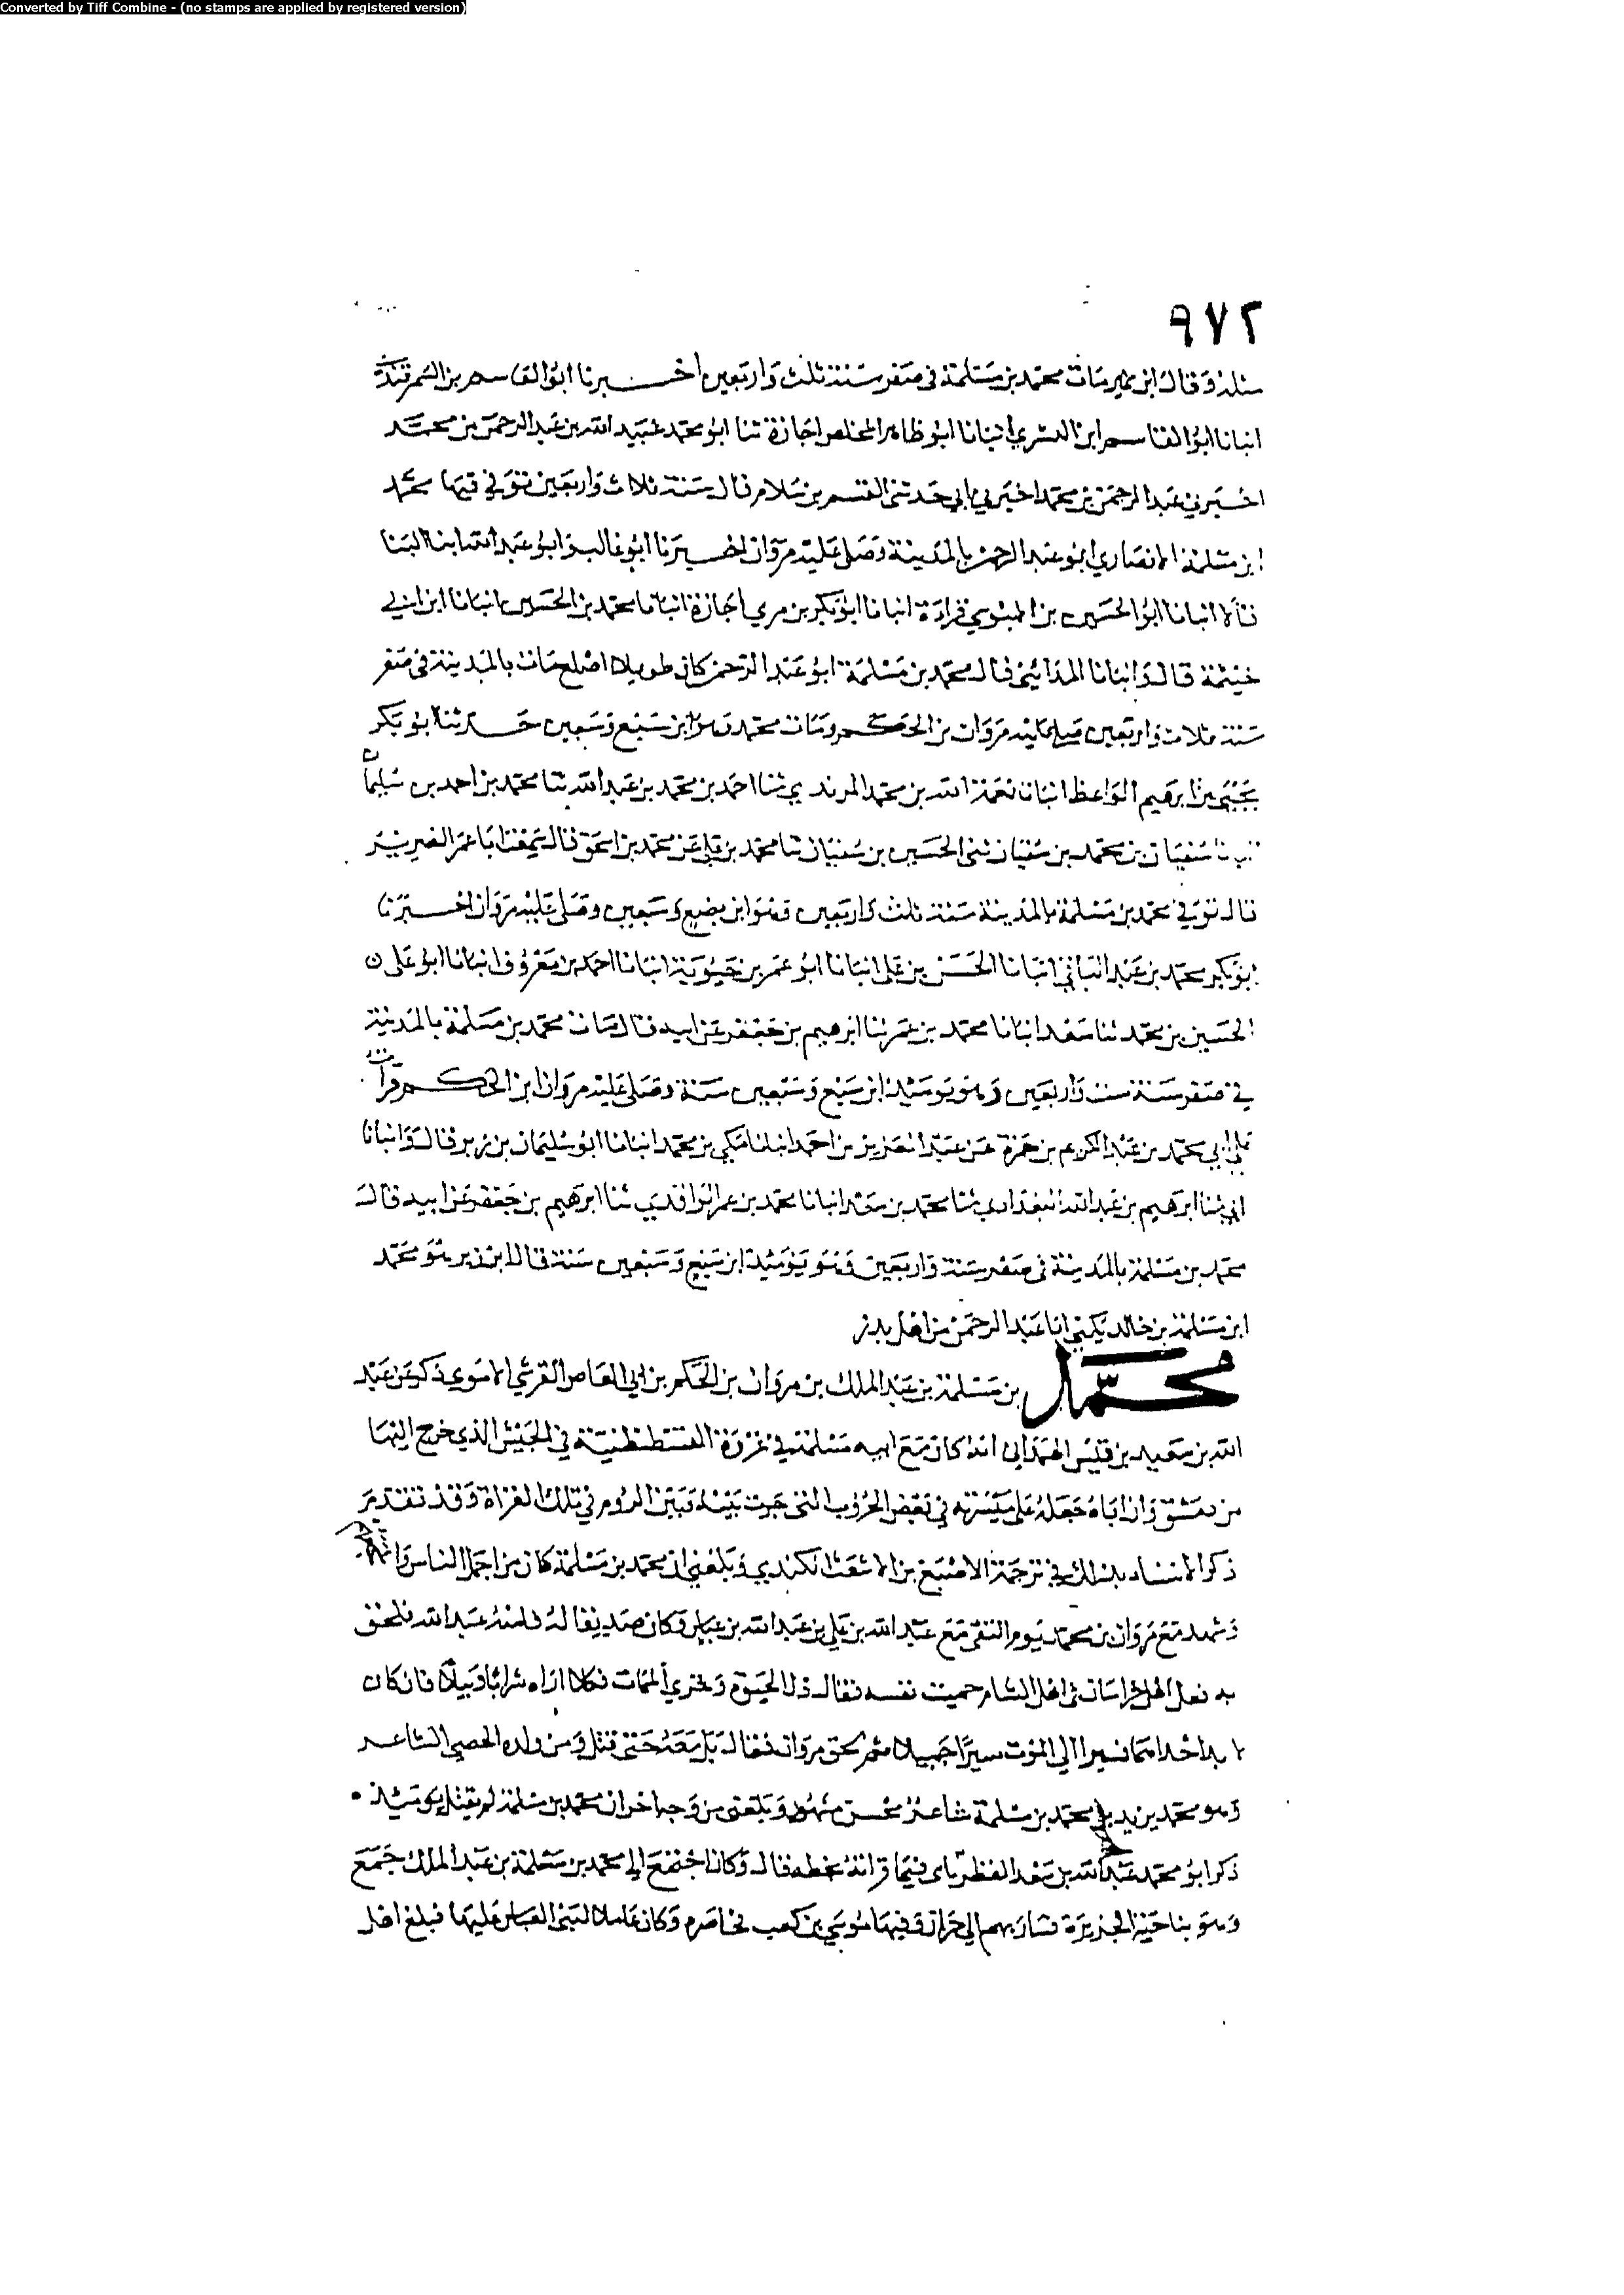 Converted by Tiff Combine - (no stamps are applied by registered version)
٩٧٢
وقال ابن نمير مات محمد بن مسلمة في صفر سنة ثلث واربعين اخبرنا ابو القاسم بن السمرقندي
انبانا ابو القاسم ابن البسري انبانا ابو طاهر المخلص اجازة ثنا ابو محمد عبيد الله بن عبد الرحمن بن محمد
اخبرني عبد الرحمن بن محمد اخبرني ابي حدثني القسم بن سلام قال سنة ثلاث واربعين توفي فيها محمد
ابن مسلمة الانصاري ابو عبد الرحمن بالمدينة وصلى عليه مروان اخبرنا ابو غالب وابو عبد الله ابنا البنا
قالا انبانا ابو الحسين بن الابنوسي قراءة انبانا ابو بكر بن بيري اجازة انبانا محمد بن الحسين انبانا ابن ابي
خيثمة قال وانبانا المدائني قال محمد بن مسلمة ابو عبد الرحمن كان طويلا اصلع مات بالمدينة في صفر
سنة ثلاث واربعين صلى عليه مروان بن الحكم ومات محمد وهو ابن سبع وسبعين حدثنا ابو بكر
يحيى بن ابرهيم الواعظ انبانا نعمة الله بن محمد المرندي ثنا احمد بن محمد بن عبد الله ثنا محمد بن احمد بن سليمان
سفيان بن محمد بن سفيان ثني الحسين بن سفيان ثنا محمد بن علي عن محمد بن اسحق قال سمعت ابا عمر الضرير
قال توفي محمد بن مسلمة بالمدينة سنة ثلث واربعين وهو ابن بضع وسبعين وصلى عليه مروان اخبرنا
ابو بكر محمد بن عبد الباقي انبانا الحسن بن علي انبانا ابو عمر بن حيوية انبانا احمد بن معروف انبانا ابو علي
الحسين بن محمد ثنا سعد انبانا محمد بن عمر ثنا ابرهيم بن جعفر عن ابيه قال مات محمد بن مسلمة بالمدينة
في صفر سنة ست واربعين وهو يومئذ ابن سبع وسبعين سنة وصلى عليه مروان ابن الحكم قرات
على ابي محمد بن عبد الكريم بن حمزة عن عبد العزيز بن احمد انبانا مكي بن محمد انبانا ابو سليمان بن زبر قال وانبانا
ابي ثنا ابرهيم بن عبد الله البغدادي ثنا محمد بن سعد انبانا محمد بن عمر الواقدي ثنا ابرهيم بن جعفر عن ابيه قال
محمد بن مسلمة بالمدينة في صفر سنة واربعين وهو يومئذ ابن سبع وسبعين سنة قال ابن زبر هو محمد
ابن مسلمة بن خالد يكنى ابا عبد الرحمن من اهل بدر
محمد بن مسلمة بن عبد الملك بن مروان بن الحكم بن ابي العاص القرشي الاموي ذكر عن عبد
الله بن سعيد بن قيس الهمداني انه كان مع ابيه مسلمة في غزوة القسطنطنية في الجيش الذي خرج اليها
من دمشق وان اباه جعله على ميسرته في بعض الحروب التي جرت بينه وبين الروم في تلك الغزاة وقد تقدم
ذكر الاسناد بذلك في ترجمة الاصبغ بن الاشعث الكندي وبلغني ان محمد بن مسلمة كان من اجمل الناس
وشهد مع مروان بن محمد يوم التقى مع عبد الله بن علي بن عبد الله بن عباس وكان صديقا له فامنه عبد الله فلحق
به فعل اهل خراسان في اهل الشام حميت نفسه فقال ذل الحيوة وخزي الممات فكلا اراه شرابا وبيلا فان كان
لا بد احداهما فسيرا الى الموت سيرا جميلا ثم لحق مروان فقاتل معه حتى قتل ومن ولده الحصني الشاعر
وهو محمد بن يزيد بن محمد بن مسلمة شاعر محسن مشهور وبلغني من وجه اخر ان محمد بن مسلمة لم يقتل يومئذ
ذكر ابو محمد عبد الله بن سعد القطربلي فيما قراته بخطه قال وكان اجتمع الى محمد بن مسلمة بن عبد الملك جمع
وهو بناحية الجزيرة فسار بهم الى حران وفيها موسى بن كعب فحاصرهم وكان عاملا لبني العباس عليها فبلغ اهل